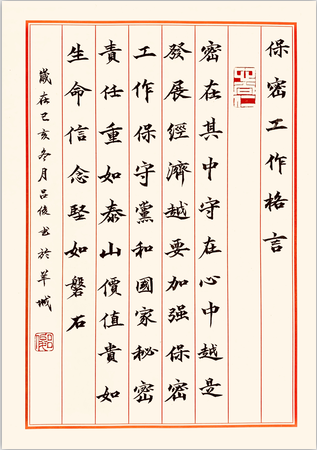 保密工作格言
密在其中守在心中越是
發展經濟越要加强保密
工作保守黨和國家秘密
責任重如泰山價值貴如
生命信念堅如磐石
歲在己亥冬月吕俊书於羊城